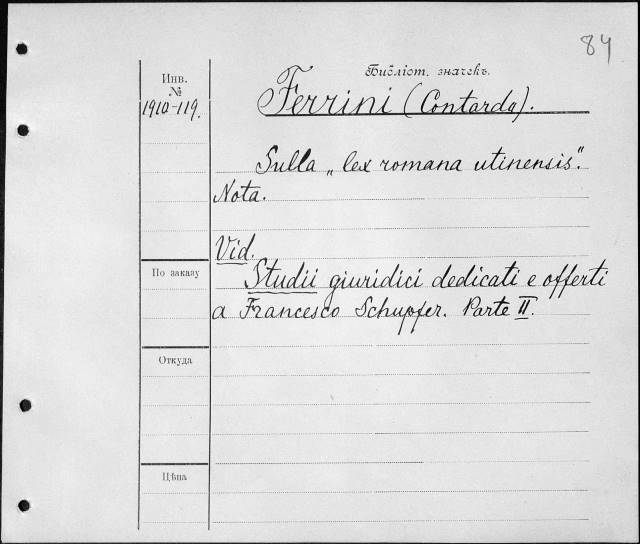 84
Библіот. значекъ.
Инв.
№
1910-119.
Ferrini (Contardo).
Sulla „lex romana utinensis".
Nota.
Vid.
Studii giuridici dedicati e offerti
a Francesco Schupfer. Parte II.
По заказу
Откуда
Цѣна